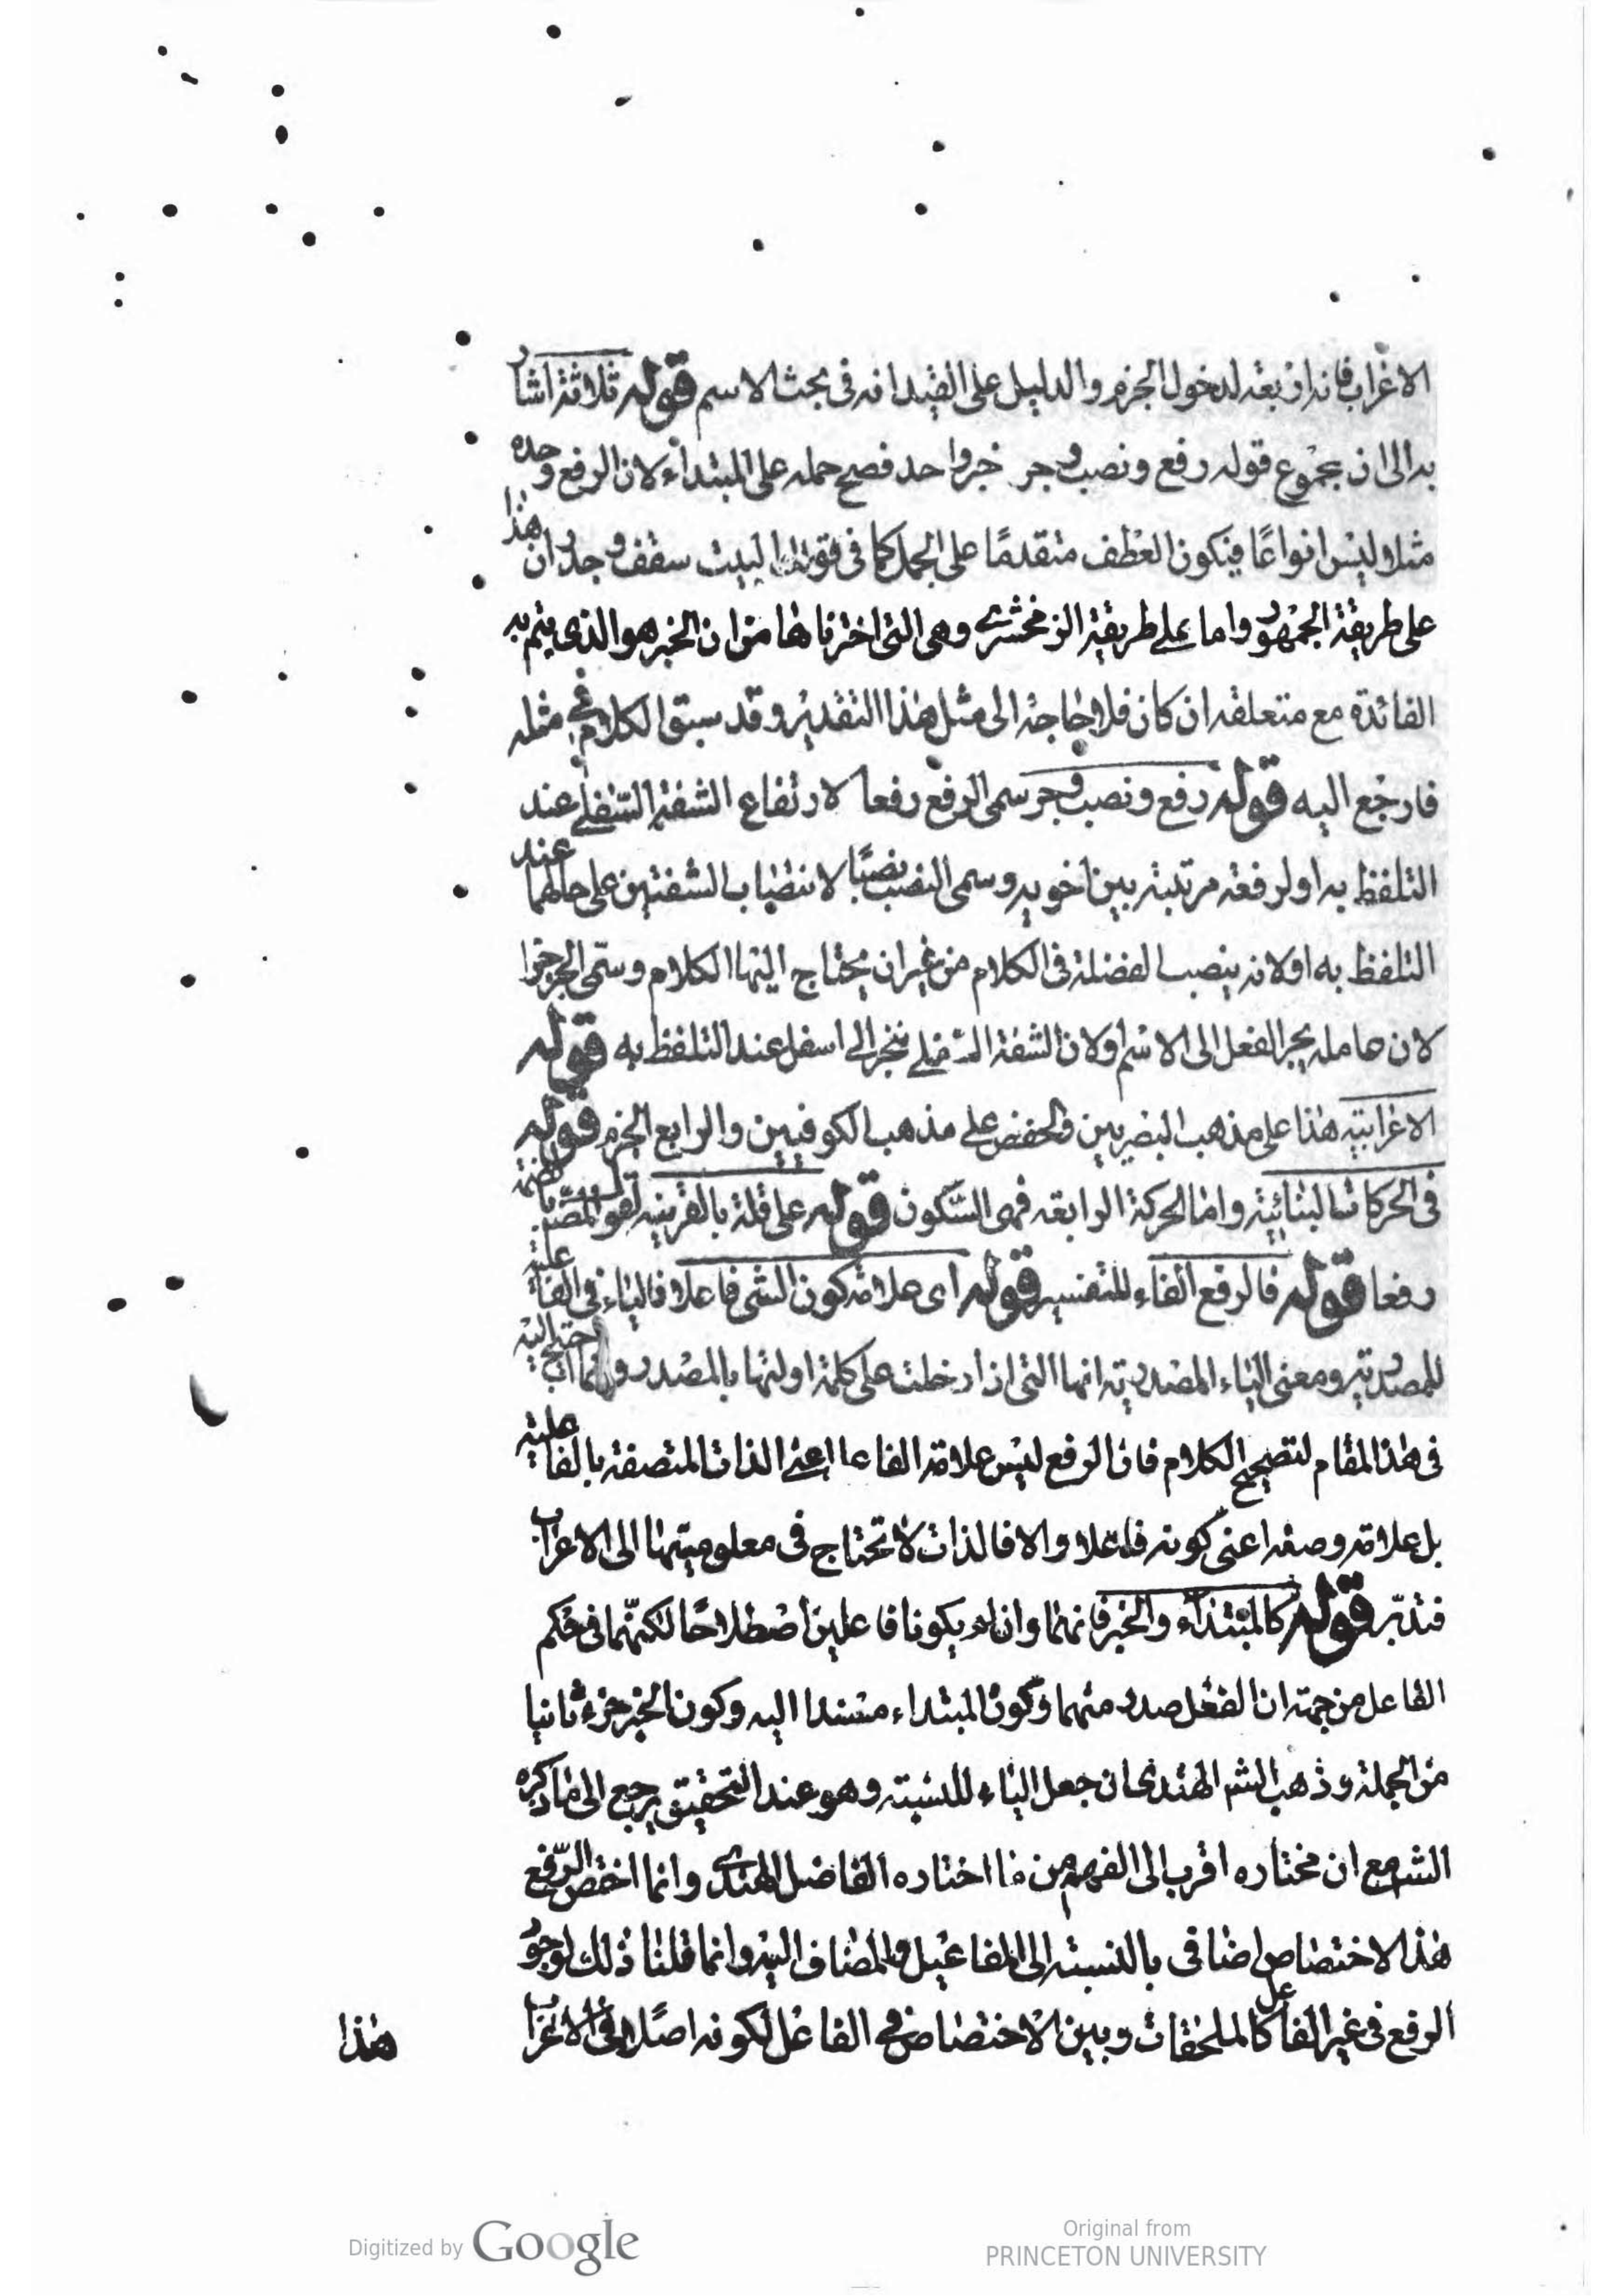 الاعراب فانه اربعة لدخول الجزم والدليل على القيد انه في بحث الاسم قوله ثلاثة اشار
به الى ان مجموع قوله رفع ونصب وجر خبر واحد فصح حمله على المبتداء لان الرفع وحده
مثلا ليس انواعًا فيكون العطف متقدمًا على الحمل كما في قولنا البيت سقف وجدران هذا
على طريقة الجمهور واما على طريقة الزمخشري وهي التي اخترناها من ان الخبر هو الذي يتم به
الفائدة مع متعلقه ان كان فلا حاجة الى مثل هذا التقدير وقد سبق الكلام في مثله
فارجع اليه قوله رفع ونصب وجر سمى الرفع رفعا لارتفاع الشفة السفلى عند
التلفظ به او لرفعة مرتبته بين اخويه وسمى النصب نصبًا لانتصاب الشفتين على حالهما عند
التلفظ به او لانه ينصب الفضلة في الكلام من غير ان يحتاج اليها الكلام وسمّى الجر جرا
لان عامله يجر الفعل الى الاسم او لان الشفة السفلى تنجر الى اسفل عند التلفظ به قوله
الاعرابية هذا على مذهب البصريين والخفض على مذهب الكوفيين والرابع الجزم قوله
في الحركات البنائية واما الحركة الرابعة فهى السّكون قوله على قلة بالقرينة لقول المصّ بالضمة
رفعا قوله فالرفع الفاء للتفسير قوله اى علامة كون الشى فاعلا فالياء في الفاعلية
للمصدرية ومعنى الياء المصدرية انها التى اذا دخلت على كلمة اولتها بالمصدر وانما احتيج اليه
في هذا المقام لتصحيح الكلام فان الرفع ليس علامة الفاعل اعنى الذات المتصفة بالفاعلية
بل علامة وصفه اعنى كونه فاعلا والا فالذات لا تحتاج في معلوميتها الى الاعراب
فتدبّر قوله كالمبتداء والخبر فانهما وان لم يكونا فاعلين اصطلاحًا لكنّهما في حكم
الفاعل من جهة ان الفعل صدر منهما وكون المبتداء مسندا اليه وكون الخبر جزء ثانيا
من الجملة وذهب الشم الهندى ان جعل الياء للنسبة وهو عند التحقيق يرجع الى ما ذكره
الش مع ان مختاره اقرب الى الفهم من ما اختاره الفاضل الهندى وانما اختص الرّفع
هذا الاختصاص اضافى بالنسبة الى المفاعيل والمضاف اليه وانما قلنا ذلك لوجود
الرفع في غير الفاعل كالملحقات وبين الاختصاص في الفاعل لكونه اصلا في الاعراب
هذا
Digitized by Google
Original from
PRINCETON UNIVERSITY